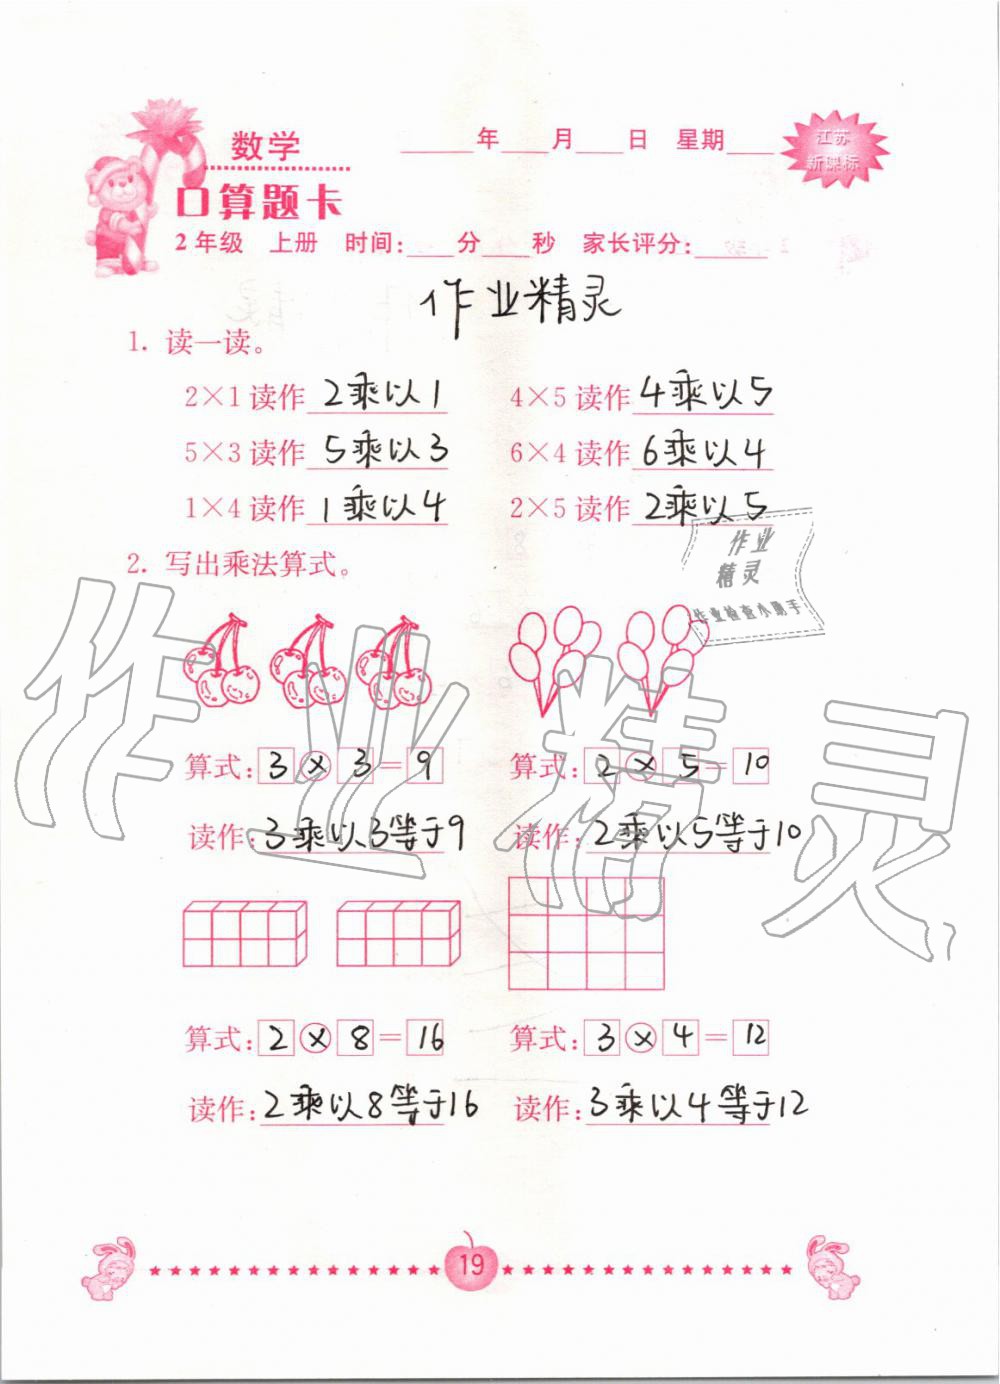 数学 ____年___月___日 星期___ 江苏
新课标
口算题卡
2年级 上册 时间:___分___秒 家长评分:_____
作业精灵
1. 读一读。
2×1读作 2乘以1 4×5读作 4乘以5
5×3读作 5乘以3 6×4读作 6乘以4
1×4读作 1乘以4 2×5读作 2乘以5
作业
精灵
作业检查小助手
2. 写出乘法算式。
作业精灵
算式: 3 × 3 = 9 算式: 2 × 5 = 10
读作: 3乘以3等于9 读作: 2乘以5等于10
算式: 2 × 8 = 16 算式: 3 × 4 = 12
读作: 2乘以8等于16 读作: 3乘以4等于12
19